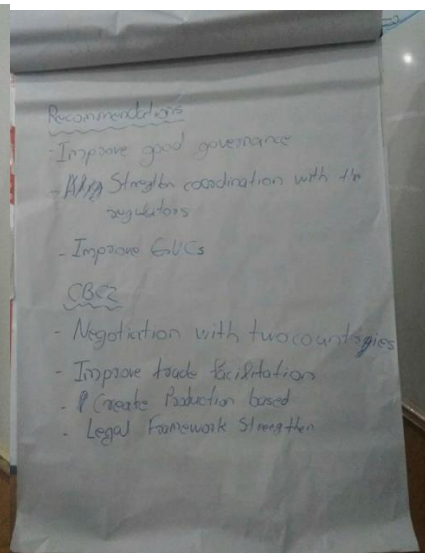 Recommendations
- Improve good governance
- Strengthen coordination with the
regulators
- Improve GVCs
CBEZ
- Negotiation with two countries
- Improve trade facilitation
- Create Production based
- Legal Framework Strengthen